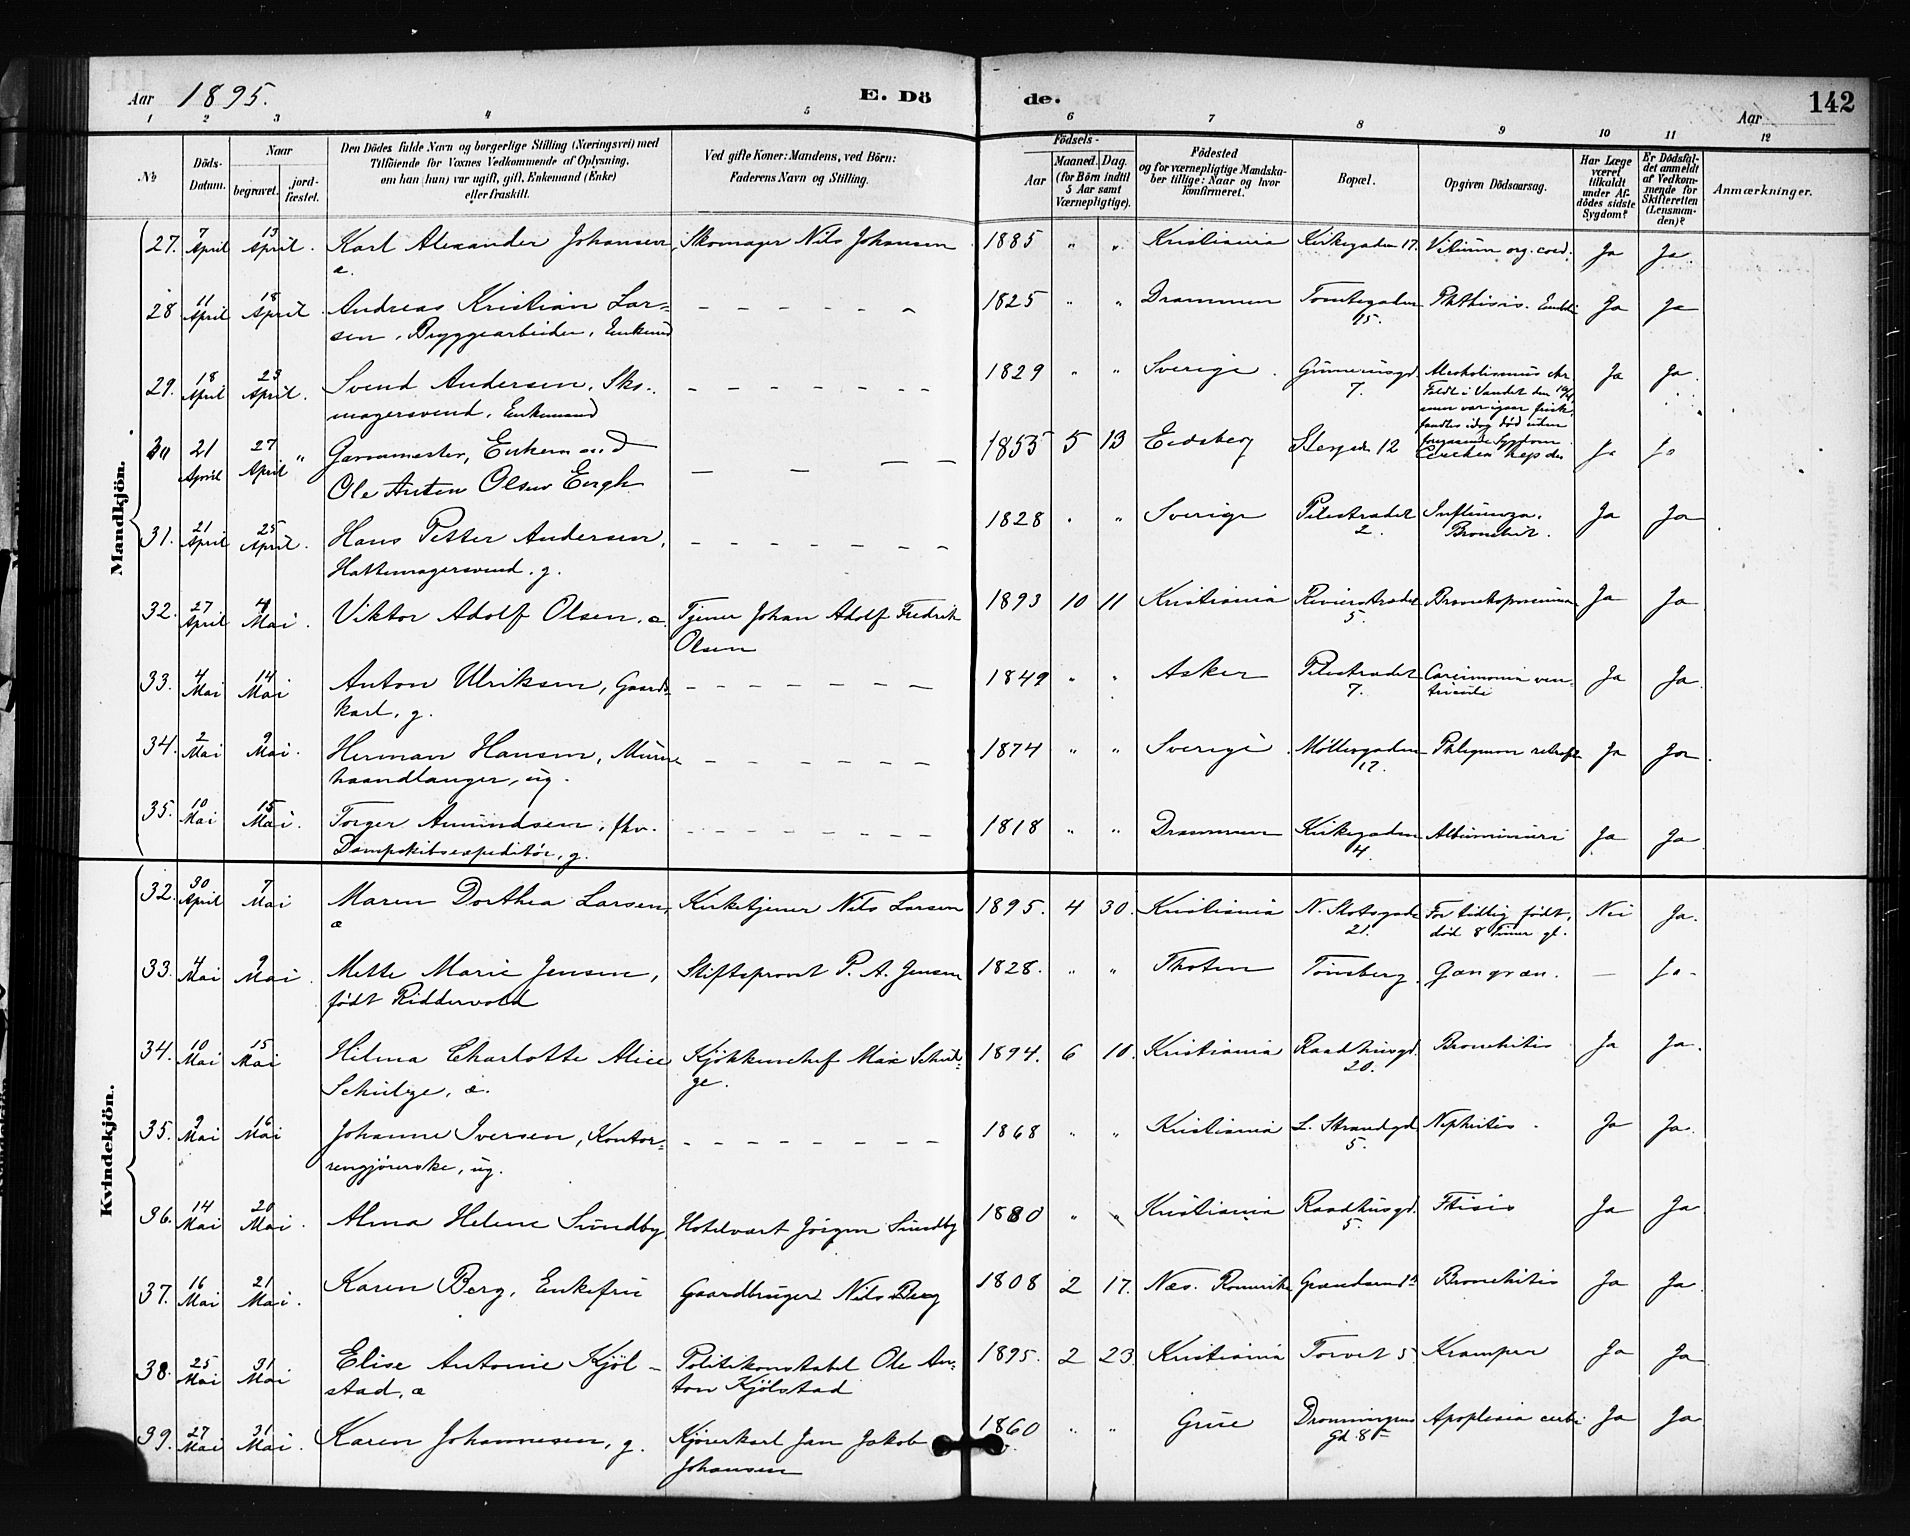 Aar 1895.
E. Dö
de.
Aar
142
1 2 3 4 5 6 7 8 9 10 11 12
№
Döds-Datum.
Naar
begravet.
jord-fæstet.
Den Dödes fulde Navn og borgerlige Stilling (Næringsvei) med
Tilföiende for Voxnes Vedkommende af Oplysning,
om han (hun) var ugift, gift, Enkemand (Enke)
eller fraskilt.
Ved gifte Koner: Mandens, ved Börn:
Faderens Navn og Stilling.
Födsels-
Aar
Maaned. Dag.
(for Börn indtil
5 Aar samt
Værnepligtige).
Födested
og for værnepligtige Mandska-
ber tillige: Naar og hvor
konfirmeret.
Bopæl.
Opgiven Dödsaarsag.
Har Læge
været
tilkaldt
under Af-
dödes sidste
Sygdom?
Er Dödsfal-
det anmeldt
af Vedkom-
mende for
Skifteretten
(Lensman-
den)?
Anmærkninger.
Mandkjön.
27. 7 April 13 April. Karl Alexander Johansen Skomager Nils Johansen 1885 " " Kristiania Kirkegaden 17. Vitium org. cord. Ja Ja.
æ.
28 11 April 18 April Andreas Kristian Lar- — — — 1825 " " Drammen Tomtegaden Phthisis. Ja Ja
sen, Bryggearbeider, Enkemd 15.
29. 18 April 23 April. Svend Andersen, Sko- — — — 1829 " " Sverige. Gunnerusgd. Alcoholismus chr. Ja Ja.
magersvend, Enkemand 7. Faldt i Vandet den
fandtes idag død uden
foregaaende Sygdom
30 21 April 27 April " Garvermester, Enkemand — — — 1855 5 13 Eidsberg 12 Ja Ja
Ole Anton Olsen Engh
31. 21 April 25 April. Hans Petter Andersen, — — — 1828 " " Sverige Pilestrædet Influenza. Ja Ja
Hattemagersvend. g. 2. Bronchit.
32. 27 April 4 Mai. Viktor Adolf Olsen. æ Tjener Johan Adolf Fredrik 1893 10 11 Kristiania Revierstrædet Bronchopneumon Ja Ja
Olsen 5.
33. 4 Mai 14 Mai Anton Ulriksen, Gaards- — — — 1849 " " Asker Pilestrædet Carcinoma ven- Ja Ja.
karl, g. 7. triculi
34. 2 Mai 9 Mai. Herman Hansen, Murer- — — — 1874 " " Sverige Møllergaden Phlegmon Ja Ja.
haandlanger, ug. 17.
35. 10 Mai 15 Mai. Torger Amundsen, fhv. — — — 1818 " " Drammen Kirkegaden Albuminuri Ja Ja.
Dampskibsexpeditör, g. 4.
Kvindekjön.
32. 30 April 7 Mai Maren Dorthea Larsen, Kirketjener Nils Larsen 1895. 4 30. Kristiania N. Slotsgade For tidlig født, Nei Ja.
æ 21. død 8 Timer gl.
33. 4 Mai 9 Mai. Mette Marie Jensen, Stiftsprovst P. A. Jensen 1828. " " Thoten Tønsberg Gangræn. — Ja
født Riddervold
34. 10 Mai 15 Mai Hilma Charlotte Alice Kjökkenchef Max Schul- 1894. 6 10. Kristiania Raadhusgd. Bronchitis Ja Ja.
Schulze, æ. ze. 20.
35. 9 Mai 16 Mai Johanne Iversen, Kontor- — — — 1868 " " Kristiania L. Strandgd. Nephritis. Ja Ja.
rengjörerske, ug. 5.
36. 14 Mai 20 Mai. Alma Helene Sundby Hotelvært Jörgen Sundby 1880 " " Kristiania Raadhusgd. Ftisis Ja Ja.
5.
37. 16 Mai 21 Mai. Karen Berg, Enkefru Gaardbruger Nils Berg 1808 2 17. Næs. Romerike Bronchitis Ja Ja.
38. 25 Mai 31 Mai Elise Antonie Kjöl- Politikonstabel Ole An- 1895. 2 23. Kristiania Torvet 5 Kramper Ja Ja.
stad, æ ton Kjölstad
39. 27 Mai 31 Mai. Karen Johannesen, g. Kjörerkarl Jan Jakob 1860 " " Grue Dronningens Apoplexia cerebri Ja Ja
Johansen Gd. 8